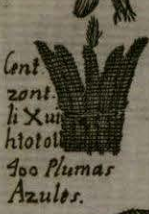 Cent
zont
li Xui
htototl
400 Plumas
Azules.